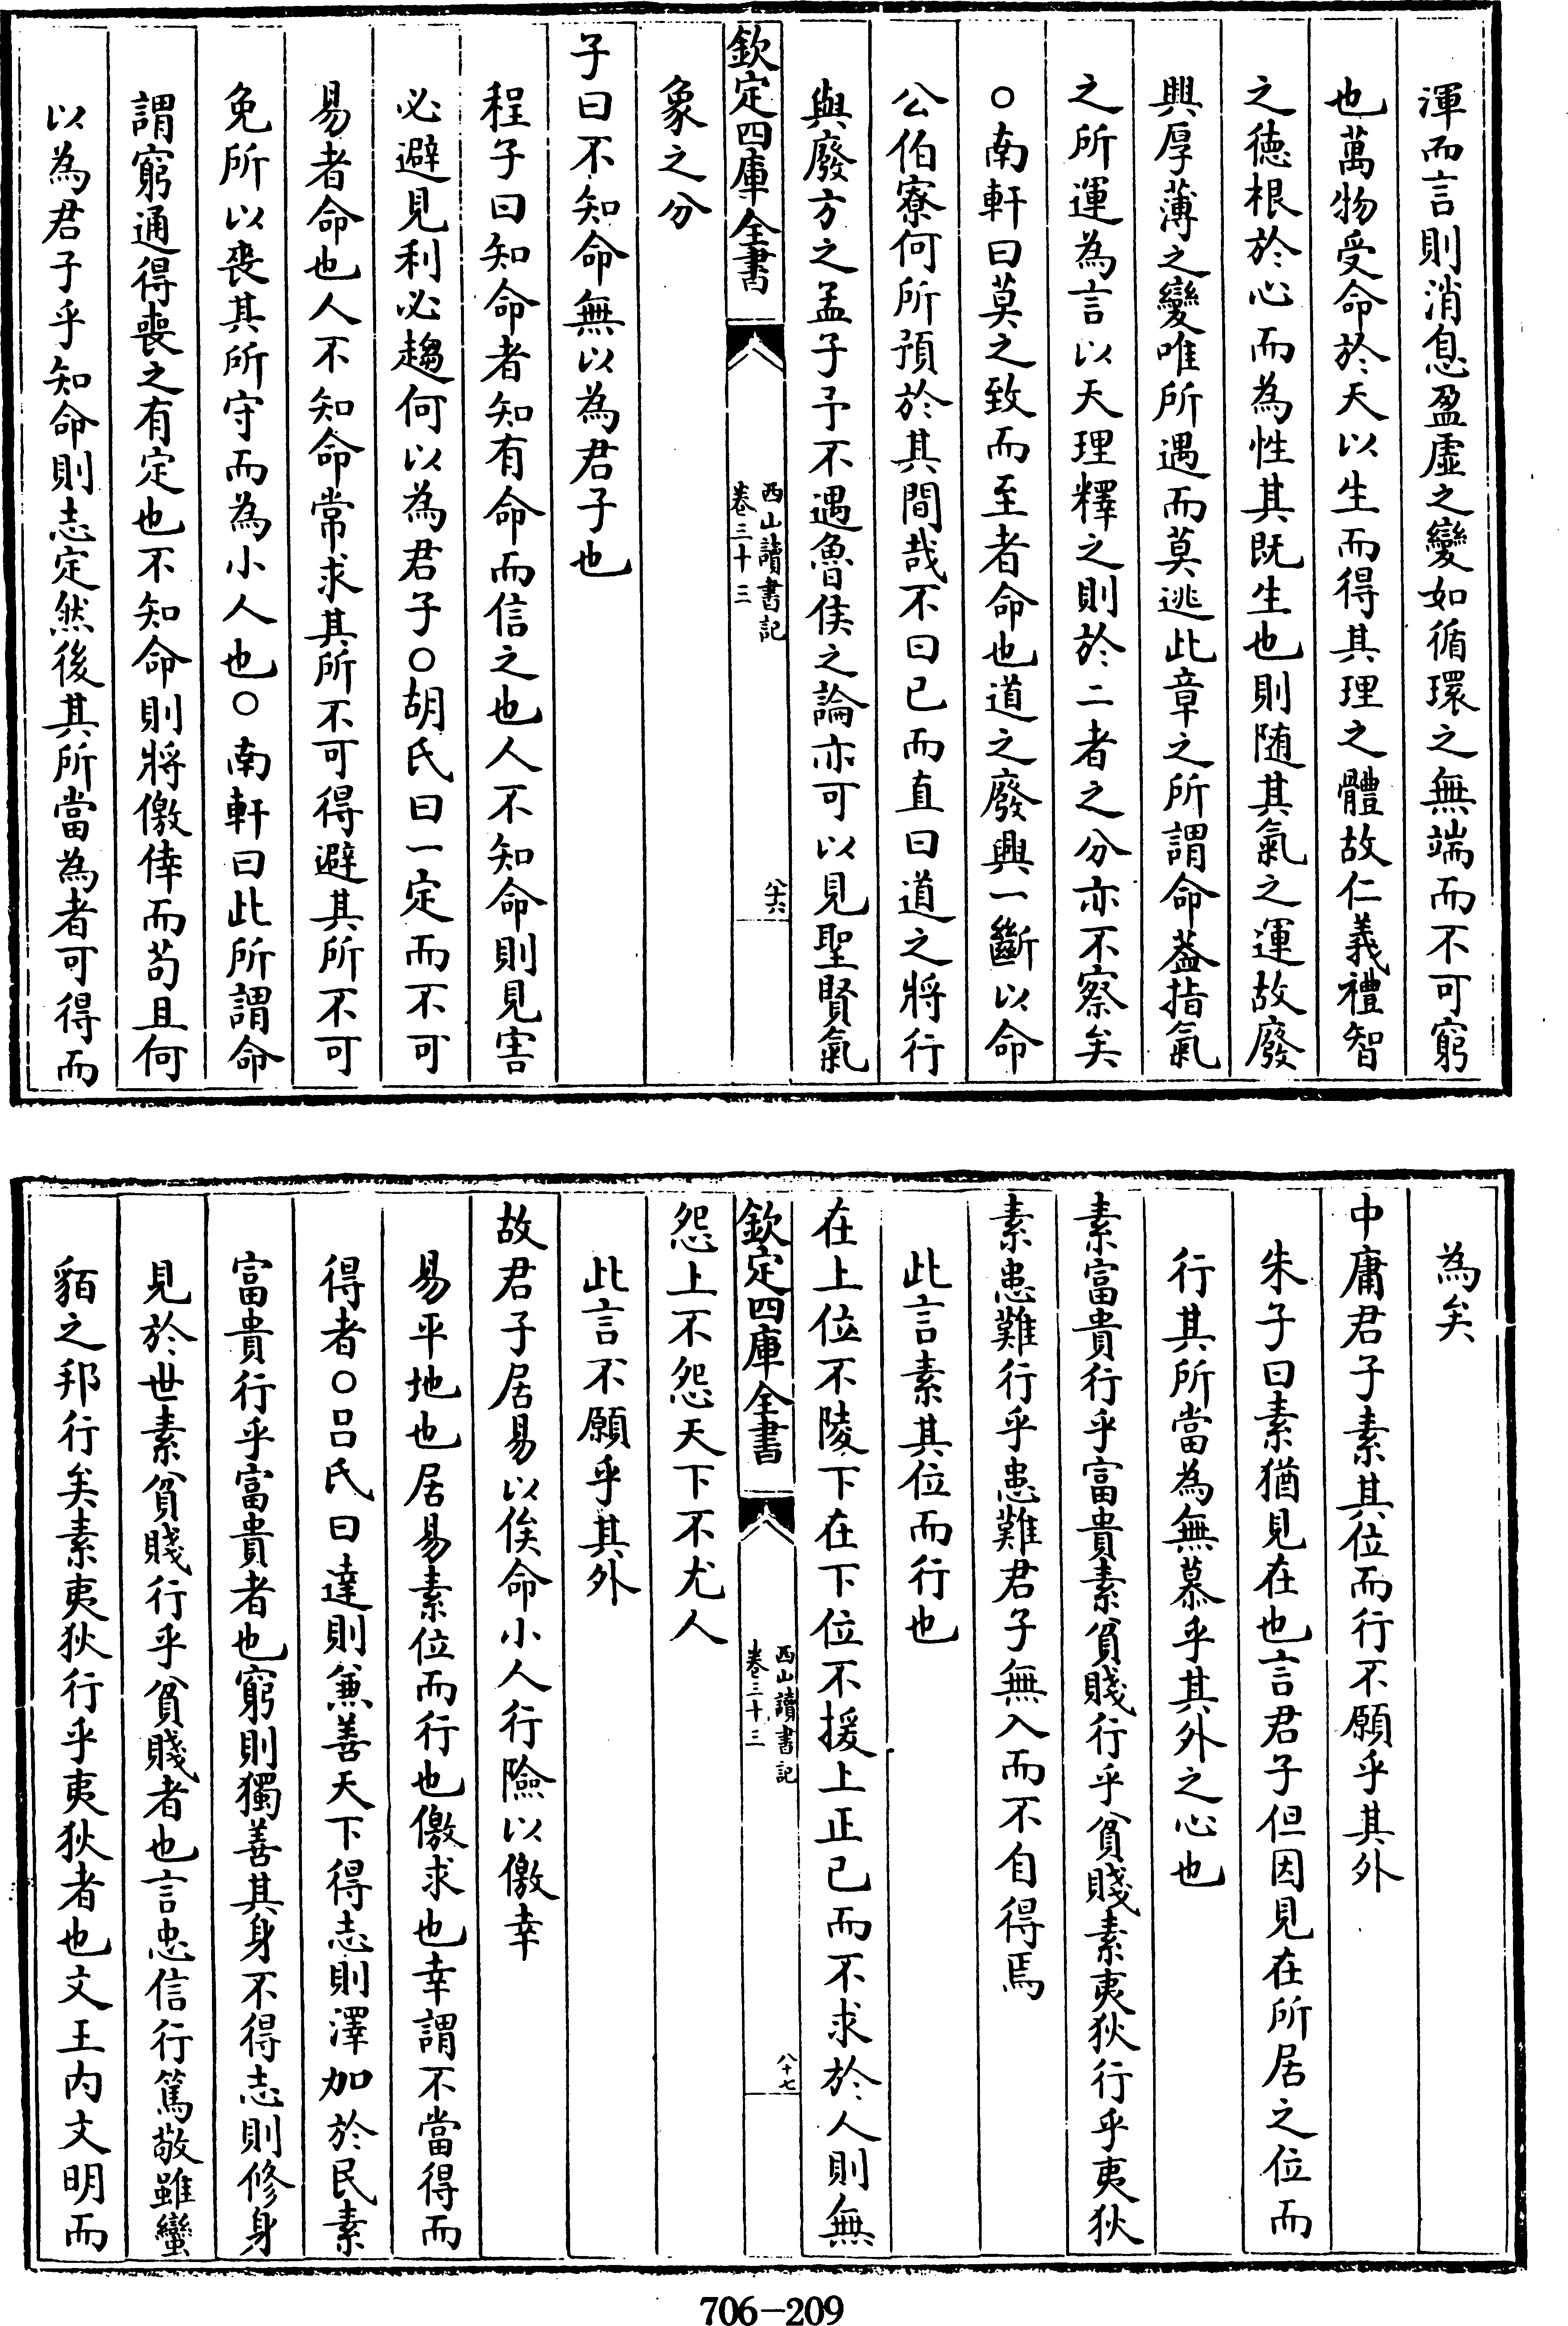 渾而言則消息盈虛之變如循環之無端而不可窮
也萬物受命於天以生而得其理之體故仁義禮智
之徳根於心而為性其既生也則随其氣之運故廢
興厚薄之變唯所遇而莫逃此章之所謂命葢指氣
之所運為言以天理釋之則於二者之分亦不察矣
○南軒曰莫之致而至者命也道之廢興一斷以命
公伯寮何所預於其間哉不曰已而直曰道之將行
與廢方之孟子予不遇魯侯之論亦可以見聖賢氣
欽定四庫全書
西山讀書記
卷三十三
八十六
象之分
子曰不知命無以為君子也
程子曰知命者知有命而信之也人不知命則見害
必避見利必趨何以為君子○胡氏曰一定而不可
易者命也人不知命常求其所不可得避其所不可
免所以喪其所守而為小人也○南軒曰此所謂命
謂窮通得喪之有定也不知命則將儌倖而苟且何
以為君子乎知命則志定然後其所當為者可得而
為矣
中庸君子素其位而行不願乎其外
朱子曰素猶見在也言君子但因見在所居之位而
行其所當為無慕乎其外之心也
素富貴行乎富貴素貧賤行乎貧賤素夷狄行乎夷狄
素患難行乎患難君子無入而不自得焉
此言素其位而行也
在上位不陵下在下位不援上正已而不求於人則無
欽定四庫全書
西山讀書記
卷三十三
八十七
怨上不怨天下不尤人
此言不願乎其外
故君子居易以俟命小人行險以儌幸
易平地也居易素位而行也儌求也幸謂不當得而
得者○呂氏曰達則兼善天下得志則澤加於民素
富貴行乎富貴者也窮則獨善其身不得志則修身
見於世素貧賤行乎貧賤者也言忠信行篤敬雖蠻
貊之邦行矣素夷狄行乎夷狄者也文王内文明而
706-209